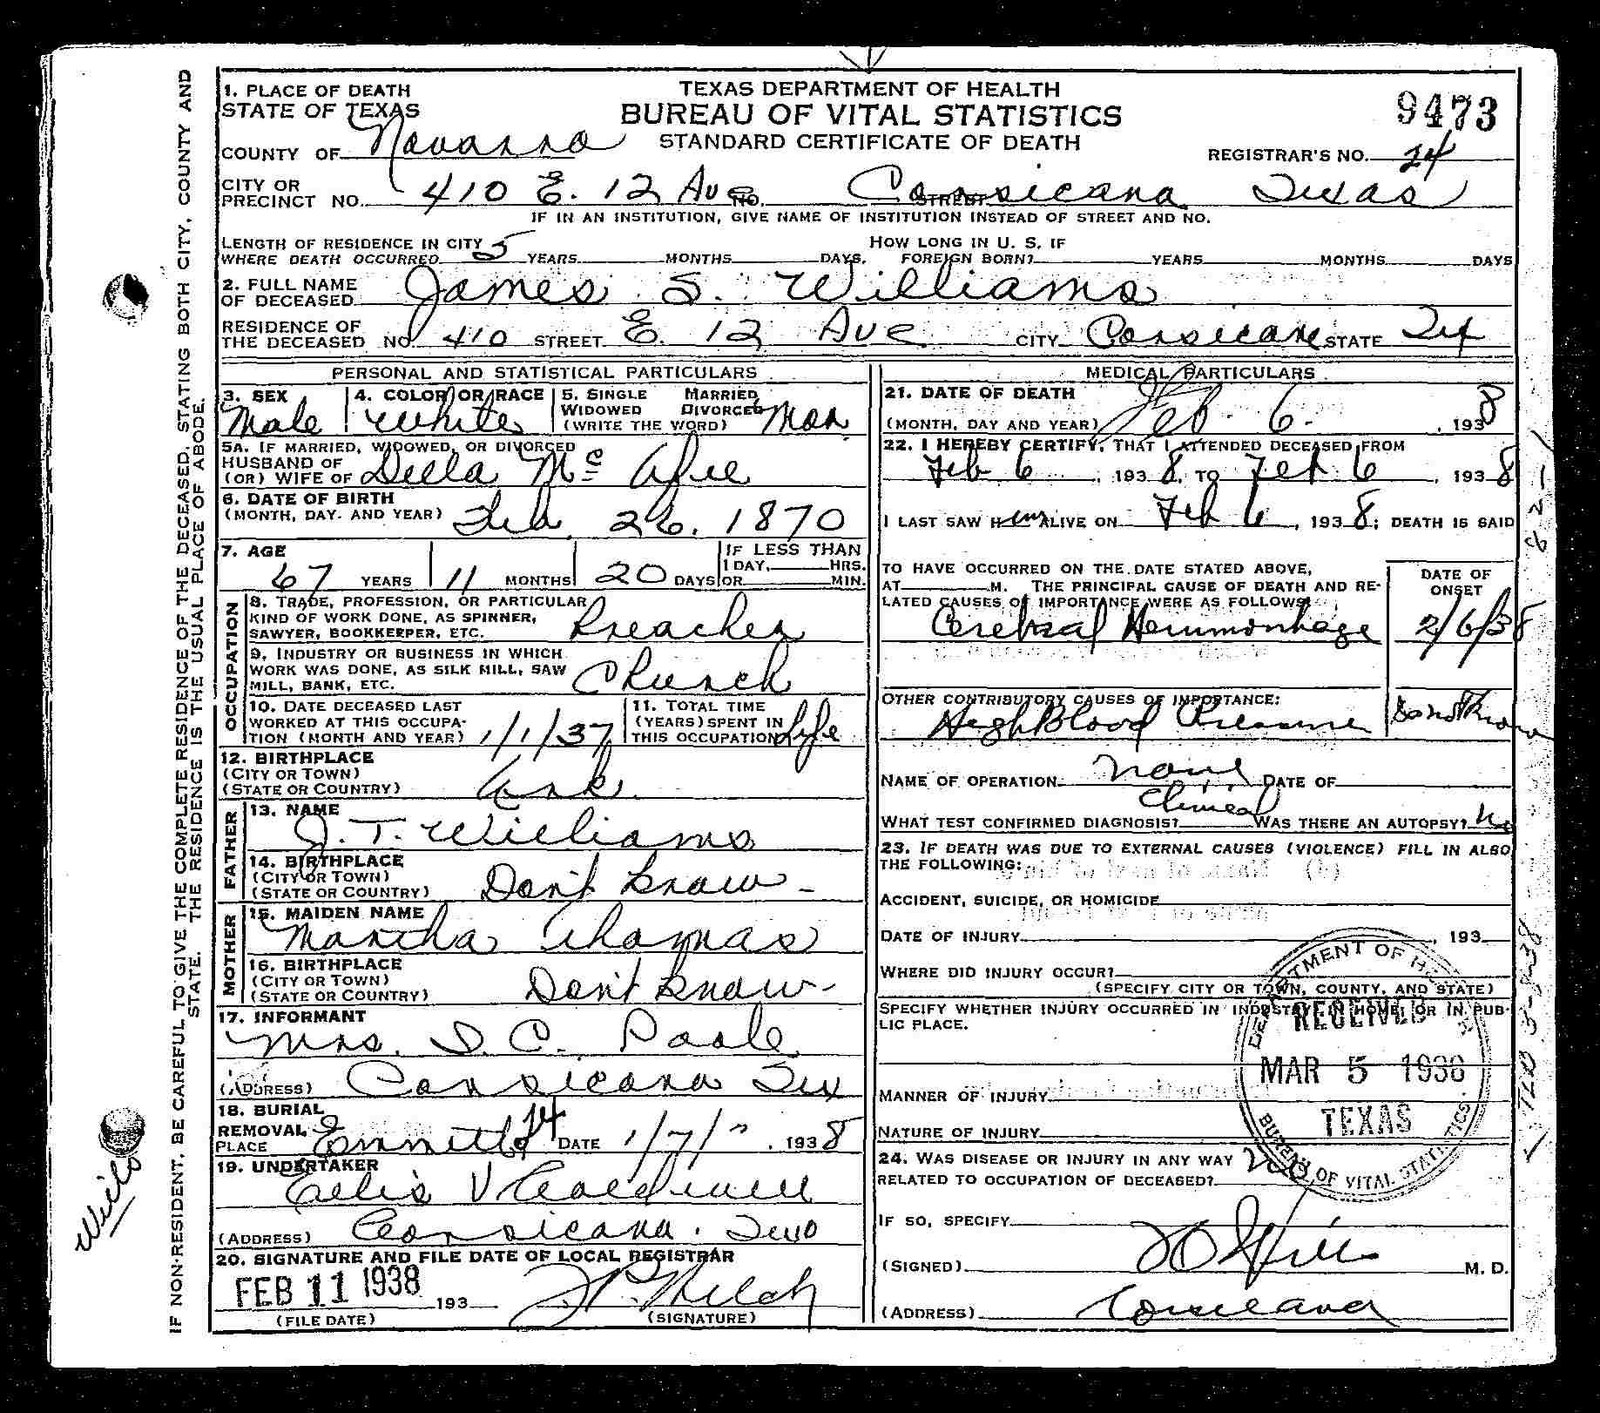 TEXAS DEPARTMENT OF HEALTH
BUREAU OF VITAL STATISTICS
STANDARD CERTIFICATE OF DEATH
9473
REGISTRAR'S NO. 24
1. PLACE OF DEATH
STATE OF TEXAS
COUNTY OF Navarro
CITY OR PRECINCT NO. 410 E. 12 Ave NO. STREET Corsicana Texas
IF IN AN INSTITUTION, GIVE NAME OF INSTITUTION INSTEAD OF STREET AND NO.
LENGTH OF RESIDENCE IN CITY WHERE DEATH OCCURRED 5 YEARS MONTHS DAYS. HOW LONG IN U. S. IF FOREIGN BORN? YEARS MONTHS DAYS
2. FULL NAME OF DECEASED James S. Williams
RESIDENCE OF THE DECEASED NO. 410 STREET E. 12 Ave CITY Corsicana STATE Tex
PERSONAL AND STATISTICAL PARTICULARS
3. SEX Male
4. COLOR OR RACE White
5. SINGLE MARRIED WIDOWED DIVORCED (WRITE THE WORD) Mar
5A. IF MARRIED, WIDOWED, OR DIVORCED
HUSBAND OF (OR) WIFE OF Della Mc Afee
6. DATE OF BIRTH (MONTH, DAY. AND YEAR) Feb. 26. 1870
7. AGE 67 YEARS 11 MONTHS 20 DAYS IF LESS THAN 1 DAY, HRS. OR MIN.
OCCUPATION
8. TRADE, PROFESSION, OR PARTICULAR KIND OF WORK DONE, AS SPINNER, SAWYER, BOOKKEEPER, ETC. Preacher
9. INDUSTRY OR BUSINESS IN WHICH WORK WAS DONE, AS SILK MILL, SAW MILL, BANK, ETC. Church
10. DATE DECEASED LAST WORKED AT THIS OCCUPATION (MONTH AND YEAR) 1/1/37
11. TOTAL TIME (YEARS) SPENT IN THIS OCCUPATION Life
12. BIRTHPLACE (CITY OR TOWN) (STATE OR COUNTRY) Ark.
FATHER
13. NAME J. T. Williams
14. BIRTHPLACE (CITY OR TOWN) (STATE OR COUNTRY) Dont Know -
MOTHER
15. MAIDEN NAME Martha Thomas
16. BIRTHPLACE (CITY OR TOWN) (STATE OR COUNTRY) Dont Know -
17. INFORMANT Mrs. D. C. Poole
(ADDRESS) Corsicana Tex
18. BURIAL REMOVAL PLACE Emmett DATE 1/7/" 1938
19. UNDERTAKER
(ADDRESS) Corsicana.
20. SIGNATURE AND FILE DATE OF LOCAL REGISTRAR
FEB 11 1938 193
(FILE DATE) (SIGNATURE)
MEDICAL PARTICULARS
21. DATE OF DEATH (MONTH, DAY AND YEAR) Feb. 6. 1938
22. I HEREBY CERTIFY, THAT I ATTENDED DECEASED FROM
Feb 6, 1938, TO Feb 6, 1938
I LAST SAW Him ALIVE ON Feb 6, 1938; DEATH IS SAID
TO HAVE OCCURRED ON THE DATE STATED ABOVE,
AT M. THE PRINCIPAL CAUSE OF DEATH AND RELATED CAUSES OF IMPORTANCE WERE AS FOLLOWS:
DATE OF ONSET
Cerebral Hemmorrhage 2/6/38
OTHER CONTRIBUTORY CAUSES OF IMPORTANCE:
High Blood Pressure
NAME OF OPERATION None DATE OF
WHAT TEST CONFIRMED DIAGNOSIS? Clinical WAS THERE AN AUTOPSY? No
23. IF DEATH WAS DUE TO EXTERNAL CAUSES (VIOLENCE) FILL IN ALSO THE FOLLOWING:
ACCIDENT, SUICIDE, OR HOMICIDE
DATE OF INJURY , 193
WHERE DID INJURY OCCUR?
(SPECIFY CITY OR TOWN, COUNTY, AND STATE)
SPECIFY WHETHER INJURY OCCURRED IN INDUSTRY, IN HOME, OR IN PUBLIC PLACE.
MANNER OF INJURY
NATURE OF INJURY
24. WAS DISEASE OR INJURY IN ANY WAY RELATED TO OCCUPATION OF DECEASED? No
IF SO, SPECIFY
(SIGNED) M. D.
(ADDRESS) Corsicana
DEPARTMENT OF HEALTH
RECEIVED
MAR 5 1938
TEXAS
BUREAU OF VITAL STATISTICS
IF NON-RESIDENT, BE CAREFUL TO GIVE THE COMPLETE RESIDENCE OF THE DECEASED, STATING BOTH CITY, COUNTY AND STATE. THE RESIDENCE IS THE USUAL PLACE OF ABODE.